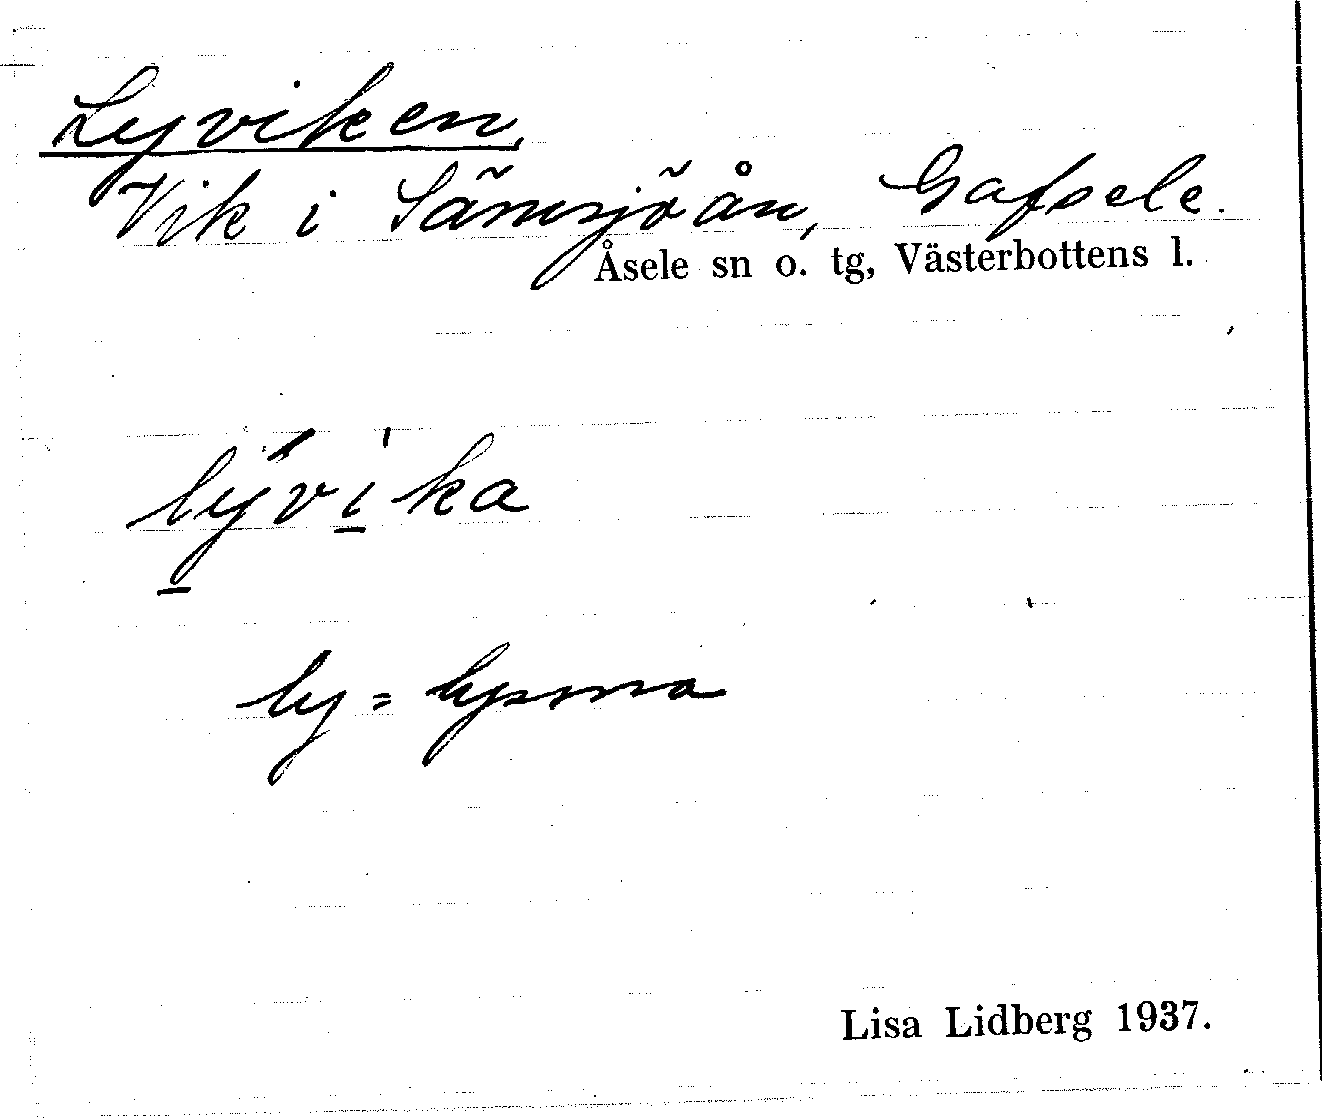 Lyviken,
Vik i Sämsjöån, Gafsele.
Åsele sn o. tg, Västerbottens l.
lyvika
ly = lyssna
Lisa Lidberg 1937.